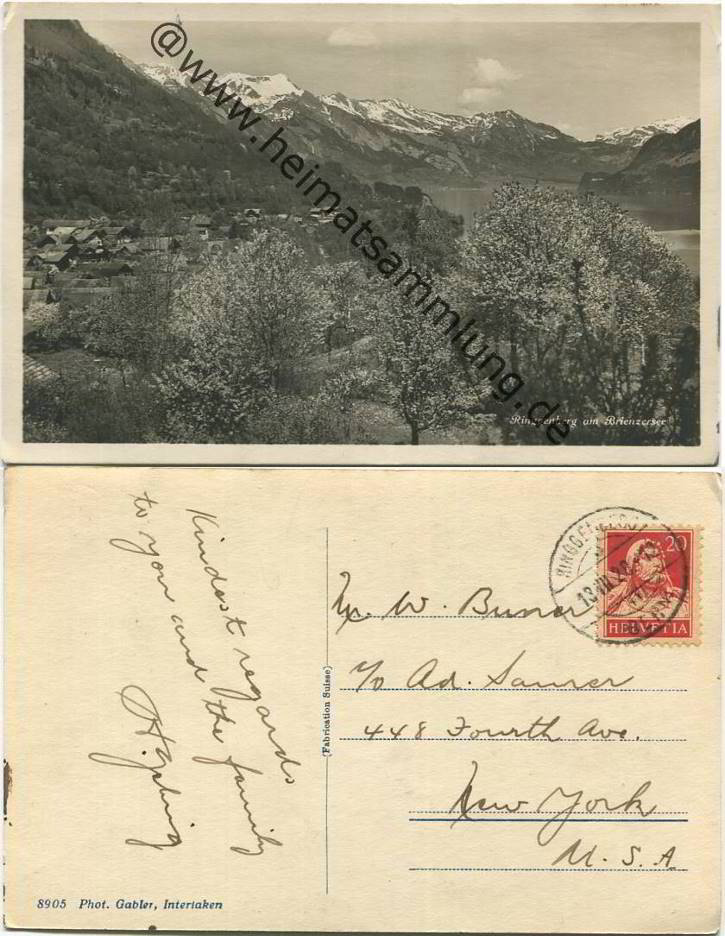 @www.heimatsammlung.de
Ringgenberg am Brienzersee
Kindest regards
to you and the family
(Fabrication Suisse)
20
HELVETIA
Mr. W. Buser
c/o Ad. Saurer
448 Fourth Ave.
New York
U. S. A.
8905 Phot. Gabler, Interlaken